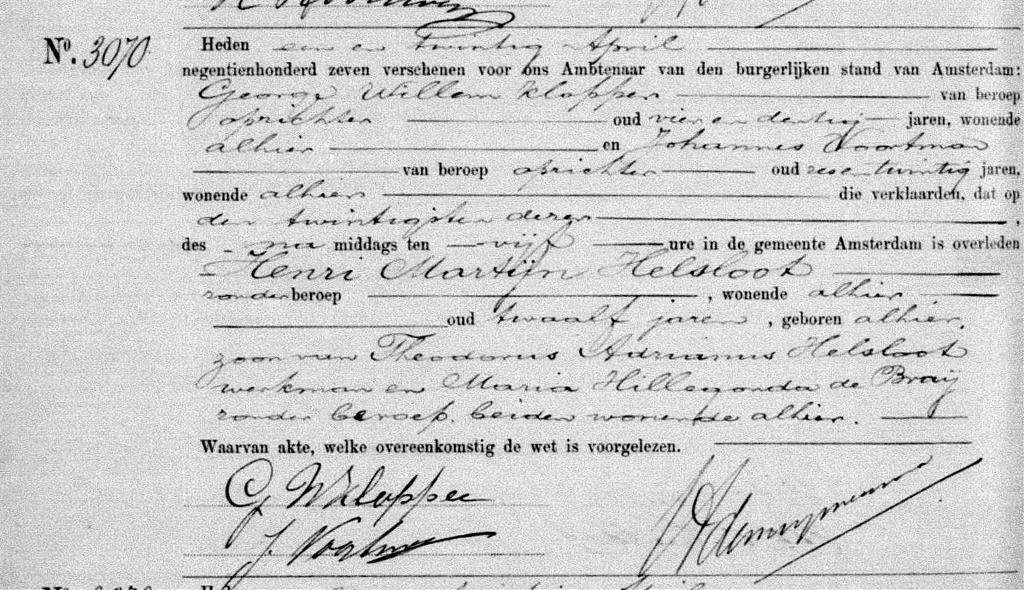 No. 3070
Heden een en twintig April
negentienhonderd zeven verschenen voor ons Ambtenaar van den burgerlijken stand van Amsterdam:
George Willem Klopper van beroep
oprichter oud vier en dertig jaren, wonende
alhier en Johannes Voortman
van beroep oprichter oud zes en twintig jaren,
wonende alhier die verklaarden, dat op
den twintigsten dezer,
des na middags ten vijf ure in de gemeente Amsterdam is overleden
Henri Martijn Helsloot
zonder beroep, wonende alhier
oud twaalf jaren, geboren alhier,
zoon van Theodorus Adrianus Helsloot
werkman en Maria Hillegonda de Braij
zonder beroep, beiden wonende alhier.
Waarvan akte, welke overeenkomstig de wet is voorgelezen.
G W Klopper
J.